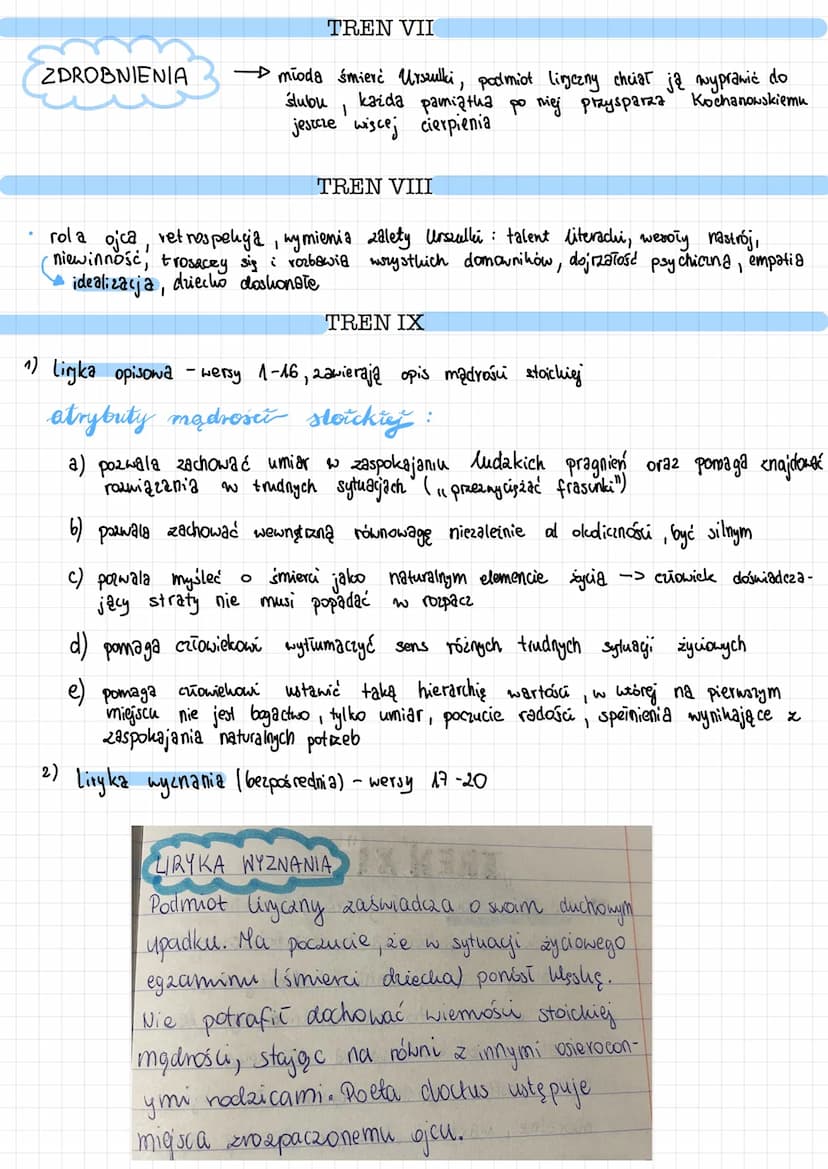 TREN VII
ZDROBNIENIA → młoda śmierć Urszulki, podmiot liryczny chciał ją wyprawić do
ślubu, każda pamiątka po niej przysparza Kochanowskiemu
jeszcze więcej cierpienia
TREN VIII
• rola ojca, retrospekcja, wymienia zalety Urszulki: talent literacki, wesoły nastrój,
niewinność, troszczy się i rozbawia wszystkich domowników, dojrzałość psychiczna, empatia
idealizacja, dziecko doskonałe
TREN IX
1) liryka opisowa - wersy 1-16, zawierają opis mądrości stoickiej
atrybuty mądrości stoickiej:
a) pozwala zachować umiar w zaspokajaniu ludzkich pragnień oraz pomaga znajdować
rozwiązania w trudnych sytuacjach („przezwyciężać frasunki")
b) pozwala zachować wewnętrzną równowagę niezależnie od okoliczności, być silnym
c) pozwala myśleć o śmierci jako naturalnym elemencie życia -> człowiek doświadcza-
jący straty nie musi popadać w rozpacz
d) pomaga człowiekowi wytłumaczyć sens różnych trudnych sytuacji życiowych
e) pomaga człowiekowi ustawić taką hierarchię wartości, w której na pierwszym
miejscu nie jest bogactwo, tylko umiar, poczucie radości, spełnienia wynikające z
zaspokajania naturalnych potrzeb
2) Liryka wyznania (bezpośrednia) - wersy 17-20
LIRYKA WYZNANIA
Podmiot liryczny zaświadcza o swoim duchowym
upadku. Ma poczucie, że w sytuacji życiowego
egzaminu (śmierci dziecka) poniósł klęskę.
Nie potrafił dochować wierności stoickiej
mądrości, stając na równi z innymi osierocon-
ymi rodzicami. Poeta doctus ustępuje
miejsca zrozpaczonemu ojcu.